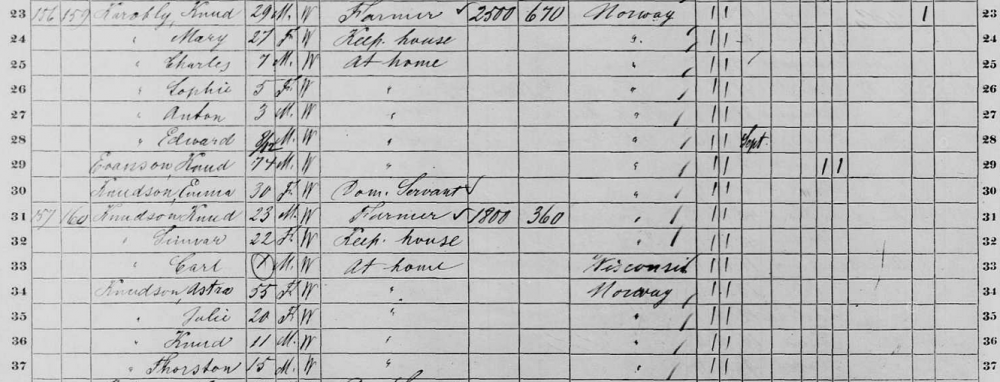 23 156 159 Karobly, Knud 29 M. W Farmer ✓ 2500 670 Norway 1 23
24 " Mary 27 F. W Keep. house " / 1 1 24
25 " Charles 7 M. W At home " / 1 1 25
26 " Sophie 5 F. W " " / 1 1 26
27 " Anton 3 M. W " " / 1 1 27
28 " Edward M. W " " / 1 1 Sept. 28
29 Evanson, Knud 74 M. W " " / 1 1 1 1 29
30 Knudson, Emma 30 F. W Dom. Servant ✓ " / 1 1 30
31 157 160 Knudson, Knud 23 M. W Farmer ✓ 1800 360 " / 1 1 31
32 " 22 F. W Keep. house " / 1 1 32
33 " Carl M. W At home Wisconsin 1 1 33
34 Knudson, Astra 55 F. W " Norway / 1 1 34
35 " Julie 20 F. W " " / 1 1 35
36 " Knud 11 M. W " " / 1 1 36
37 " Thorston 15 M. W " " / 1 1 37